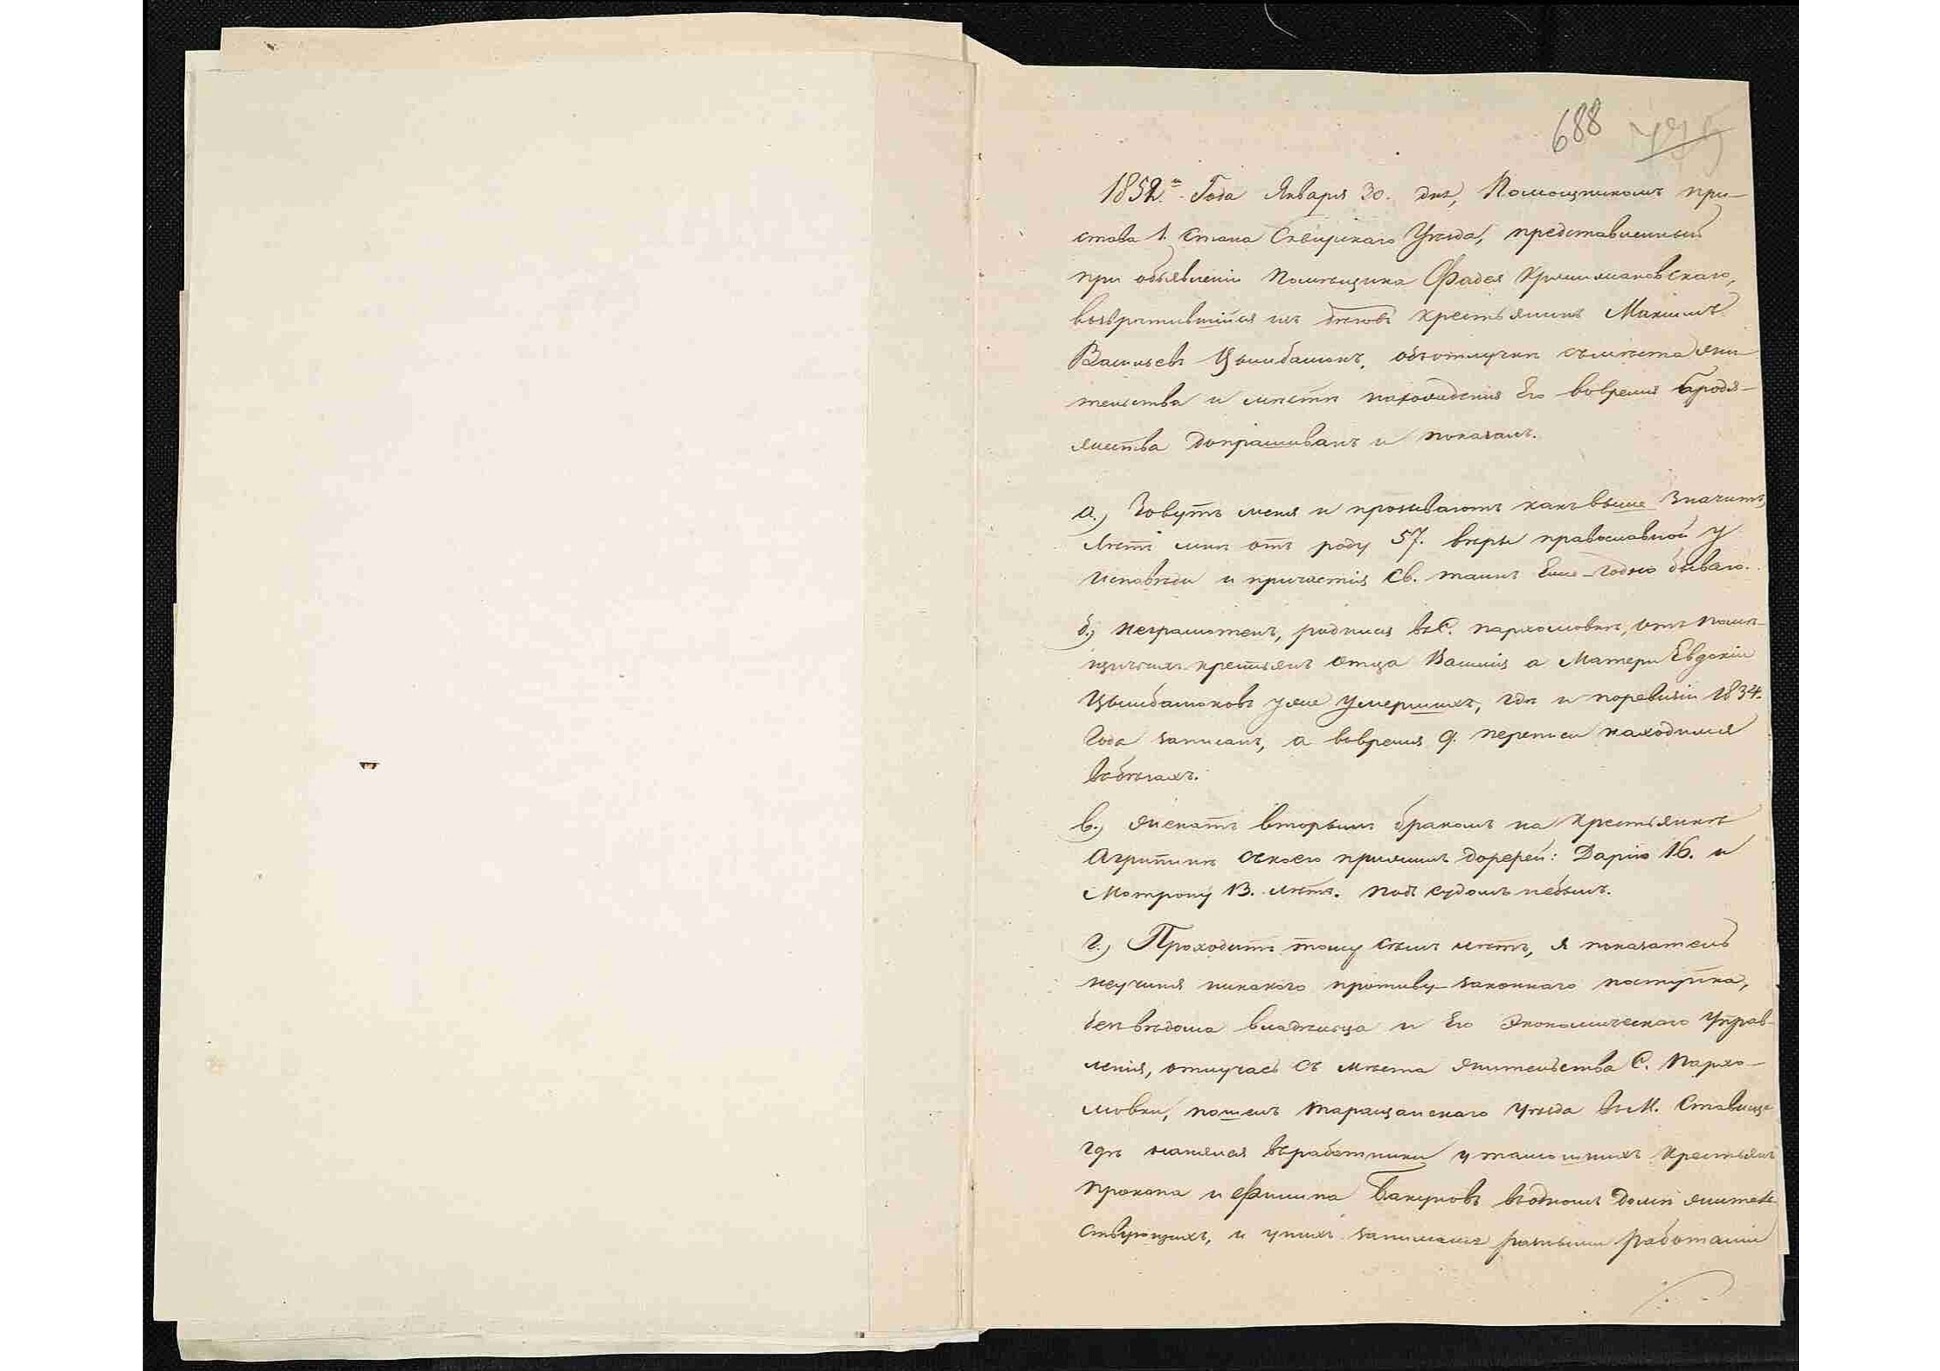 688 775
1852.го Года Января 30. дня, Помощникомъ при-
става 1. Стана Сквирскаго Уѣзда, представленный
при объявленіи Помѣщика Фадея Кржижановскаго,
возвратившійся изъ бѣговъ крестьянинъ Максимъ
Васильевъ Цымбалюкъ, объотлучки съмѣстажи-
тельства и мѣстѣ нахожденія Его вовремя бродя-
жества допрашиванъ и показалъ.
а.) Зовутъ меня и прозываютъ какъвыше значитъ,
лѣтъ мнѣ отъ роду 57. вѣры православной у
исповѣди и причастія Св. таинъ Еже-годно бываю.
б.) неграмотенъ, родился въС. пархомовкѣ, отъ помѣ-
щичихъ крестьянъ отца Василія а Матери Евдокіи
Цымбалюковъ уже умершихъ, гдѣ и поревизіи 1834.
Года записанъ, а вовремя 9. переписи находился
вобѣгахъ.
в.) женатъ вторымъ бракомъ на крестьянкѣ
Агрипинѣ съкоею прижилъ дочерей: Дарію 16. и
Мотрону 13. лѣтъ. подъ судомъ небылъ.
г.) Проходитъ тому семь лѣтъ, я показатель
неучиня никакого противу-законнаго поступка,
безвѣдома владѣльца и Его Экономическаго Управ-
ленія, отлучась съ мѣста жительства С. Пархо-
мовки, пошелъ таращанскаго уѣзда въМ. Ставище
гдѣ нанялся въработники утамошнихъ крестьянъ
прокопа и Филипа Бакумовъ въодномъ домѣ житель
ствующихъ, и унихъ занимался разными работами